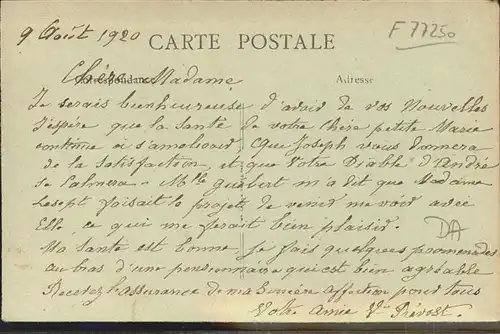 9 Août 1920
F 77250
CARTE POSTALE
Correspondance
Adresse
Chère Madame
Je serais bienheureuse d'avoir de vos Nouvelles
J'espère que la santé de votre Chère petite Marie
continue à s'améliorer Que Joseph vous donnera
de la satisfaction, et que Votre Diable d'André
se Calmera - Mlle Guibert m'a dit que Madame
faisait le projet de venir me voir avec
Elle, ce qui me ferait bien plaisir.
DA
Ma santé est bonne. Je fais quelques promenades
au bras d'une pensionnaire qui est bien agréable
Recevez l'assurance de ma sincère affection pour tous
Votre amie Ve Prévost.